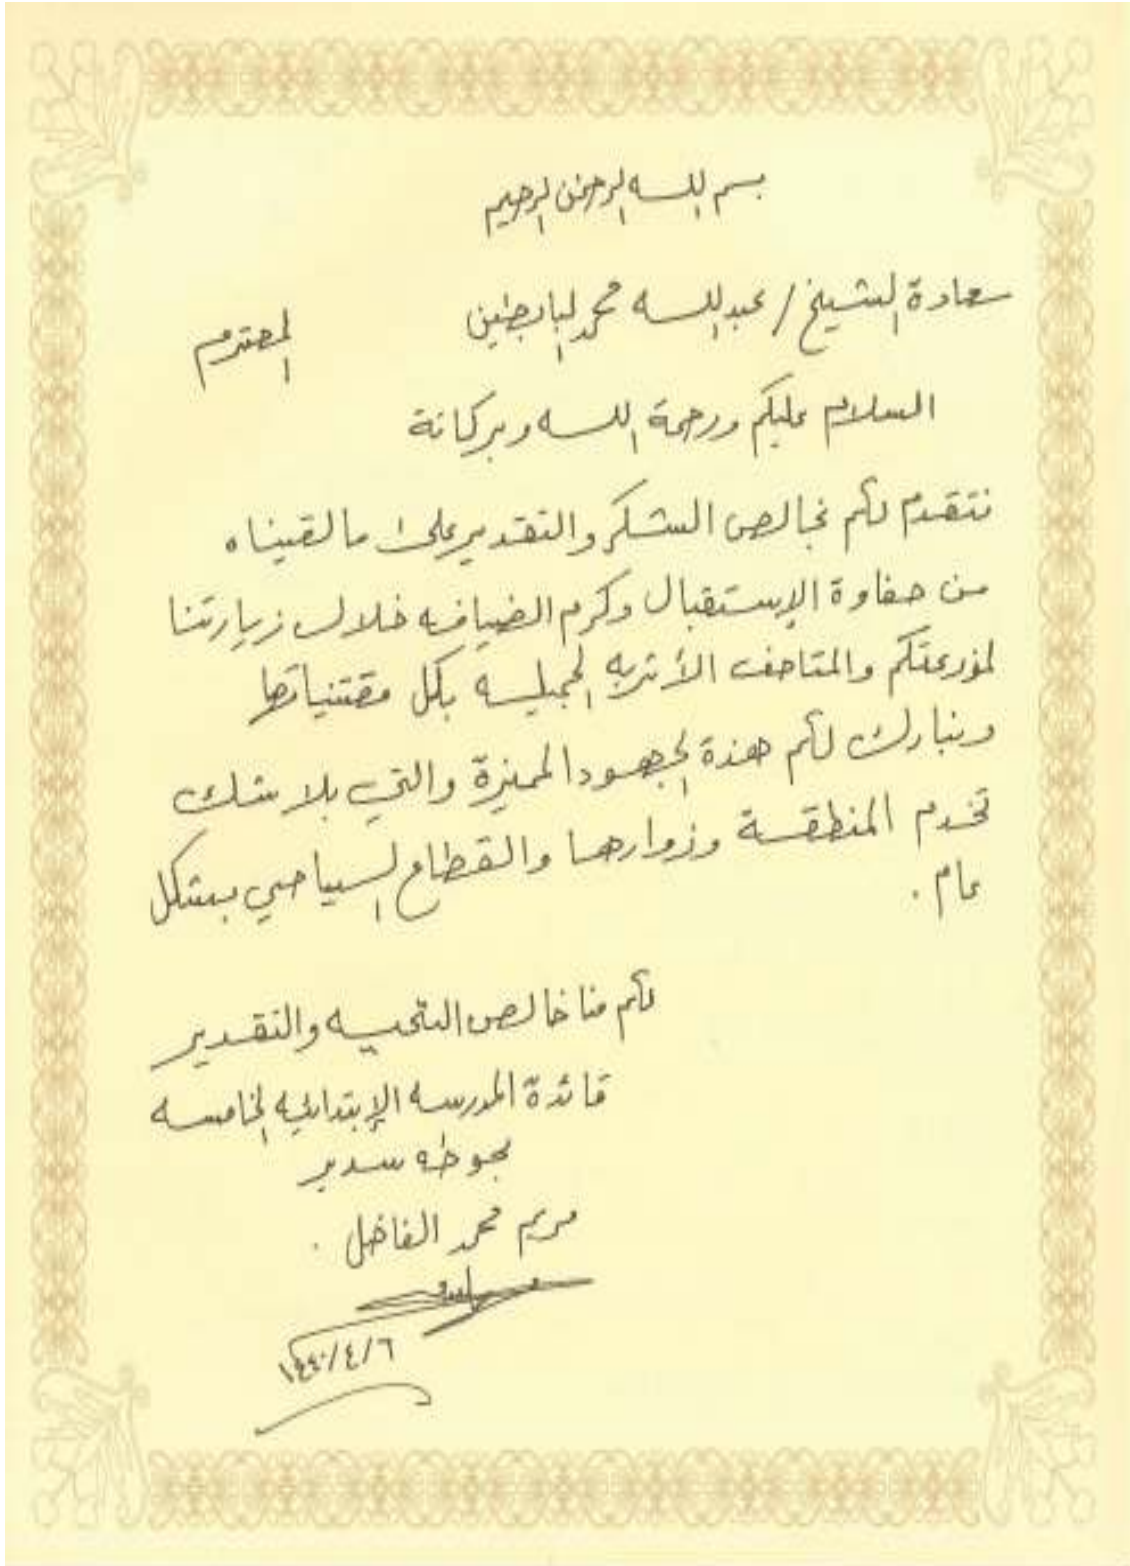 بسم الله الرحمن الرحيم
سعادة الشيخ / عبدالله محمد البابطين المحترم
السلام عليكم ورحمة الله وبركاتة
نتقدم لكم بخالص الشكر والتقدير على مالقيناه
من حفاوة الإستقبال وكرم الضيافه خلال زيارتنا
لمزرعتكم والمتاحف الأثريه الجميله بكل مقتنياتها
ونبارك لكم هذة الجهود المميزة والتي بلا شك
تخدم المنطقة وزوارها والقطاع السياحي بشكل
عام .
لكم منا خالص التحيه والتقدير
قائدة المدرسه الإبتدائيه الخامسه
بحوطه سدير
مريم محمد الفاضل .
١٤٤٠/٤/٦